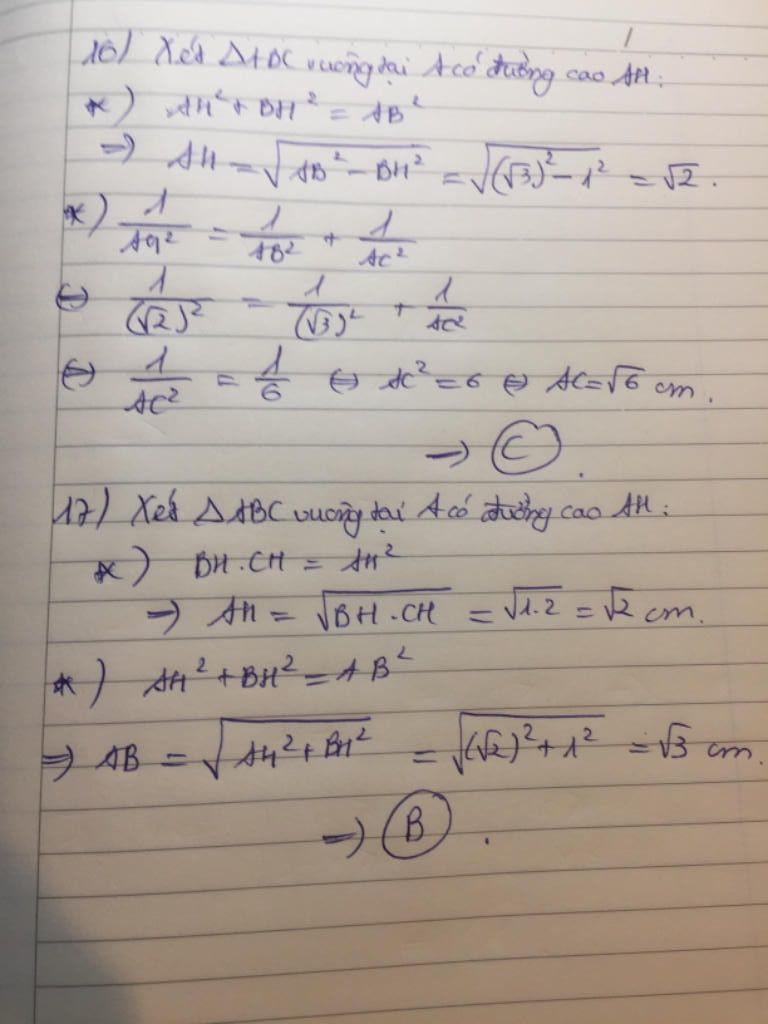 16) Xét △ABC vuông tại A có đường cao AH:
*) AH² + BH² = AB²
⇒ AH = √(AB² − BH²) = √((√3)² − 1²) = √2.
*) 1/AH² = 1/AB² + 1/AC²
⇔ 1/(√2)² = 1/(√3)² + 1/AC²
⇔ 1/AC² = 1/6 ⇔ AC² = 6 ⇔ AC = √6 cm.
⇒ C.
17) Xét △ABC vuông tại A có đường cao AH:
*) BH.CH = AH²
⇒ AH = √(BH.CH) = √(1.2) = √2 cm.
*) AH² + BH² = AB²
⇒ AB = √(AH² + BH²) = √((√2)² + 1²) = √3 cm.
⇒ B.